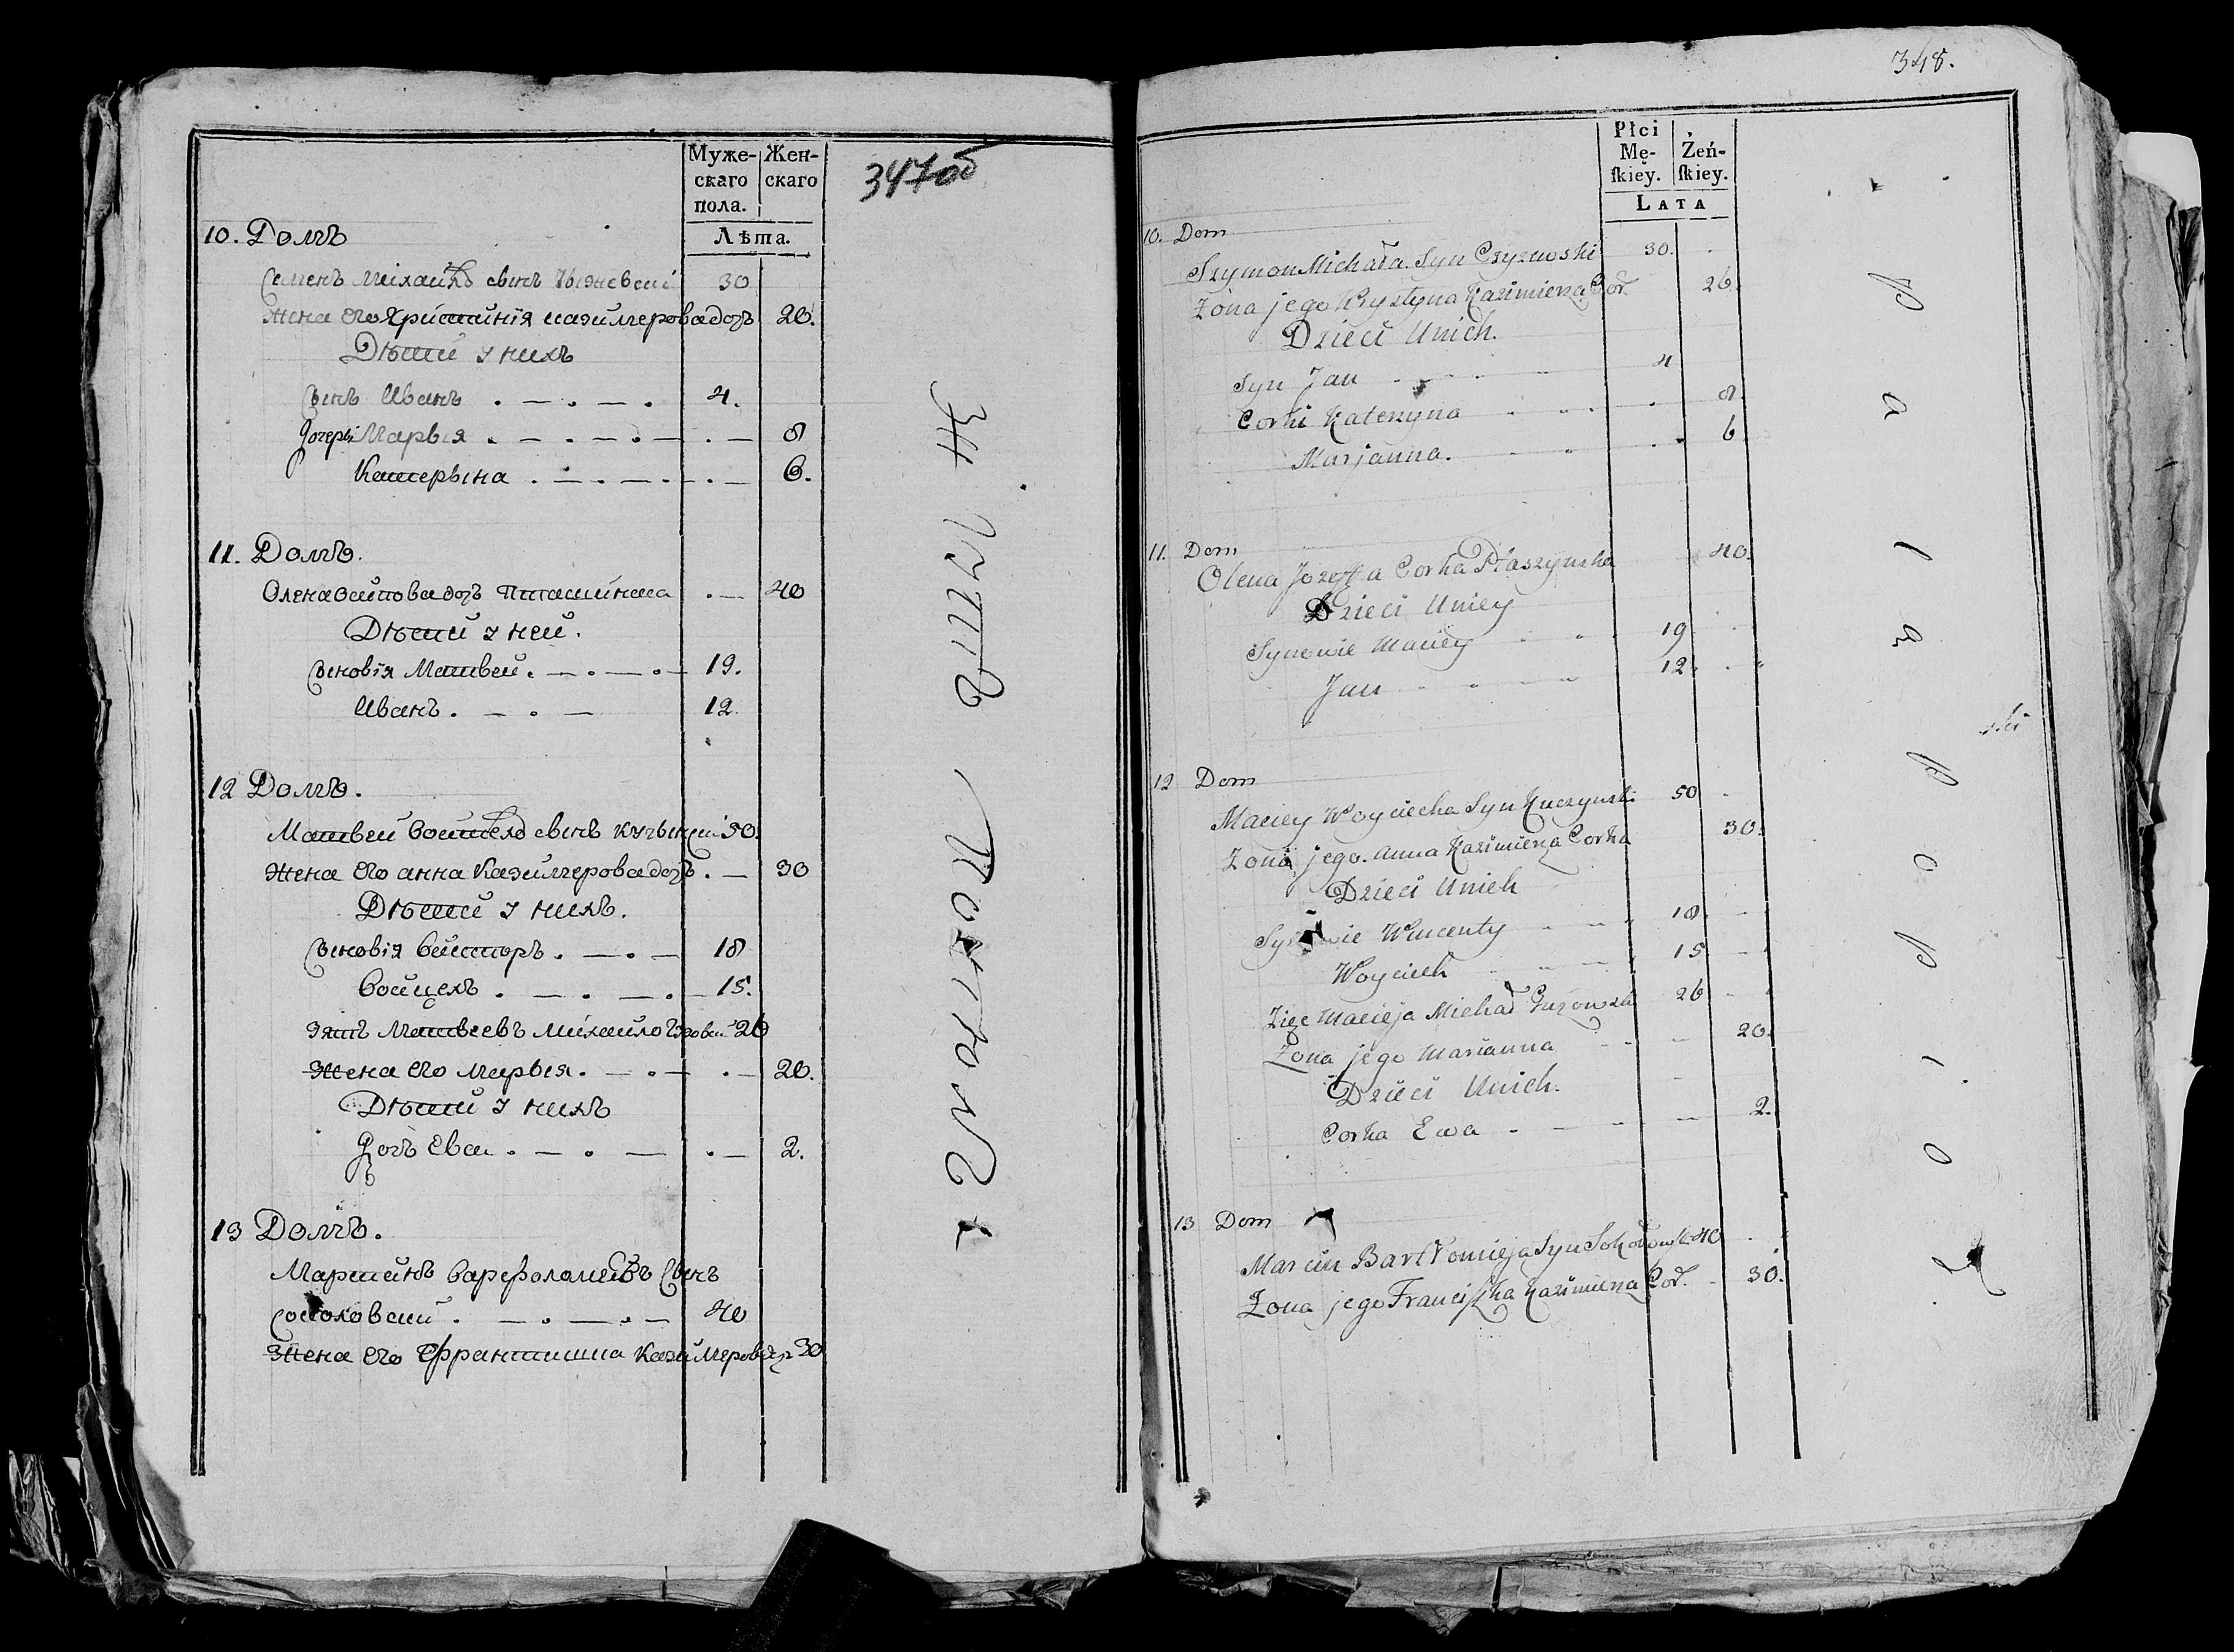 Муже-
скаго
пола.
Жен-
скаго
Лѣта.
347 об
10. Домъ
Семенъ Михайлъ сынъ Чыжевский 30
Жена его Христинія Казимерова дочь 26.
Дѣти у нихъ
Сынъ Иванъ . — . — . 4.
Дочери Марыя . — . — . — . — 8
Катерына . — . — . — . — 6.
11. Домъ.
Олена дочь . — 40
Дѣти у ней.
Сыновія Матвей . — . — . — 19.
Иванъ . — . — 12.
12 Домъ.
Матвей Войтехо сынъ 50.
Жена его анна Казимерова дочь . — 30
Дѣти у нихъ.
Сыновія . — . — 18
Войцехъ . — . — . — 15.
Зять Матвеевъ Михайло 26
Жена его Марыя . — . — . — 20.
Дѣти у нихъ
Дочь Ева . — . — . — 2.
13 Домъ.
Мартинъ Варфоломеевъ сынъ
Соколовский . — . — . — 40
Жена его Франтишка Казимерова дочь 30
348.
Płci
Mę-
ſkiey.
Żeń-
ſkiey.
LATA
10. Dom
Szymon Michała Syn Czyzewski 30.
Zona jego Krystyna Kazimierza Cór. 26.
Dzieci Unich.
Syn Jan 4
Corki Katerzyna 8.
Marjanna. 6
11. Dom
Olena Jozeffa Corka Ptaszynska 40.
Dzieci Uniey
Synowie Maciey 19
Jan 12.
12 Dom
Maciey Woyciecha Syn Kuczynski 50
Zona jego. Anna Kazimierza Corka 30.
Dzieci Unich
Synowie Wincenty 18.
Woyciech 15
Zięc Macieja Michał 26
Zona jego Marianna 20.
Dzieci Unich.
Corka Ewa 2.
13 Dom
Marcin Bartłomieja Syn Sokołowski 40
Zona jego Franciſzka Kazimierza Cor. 30.